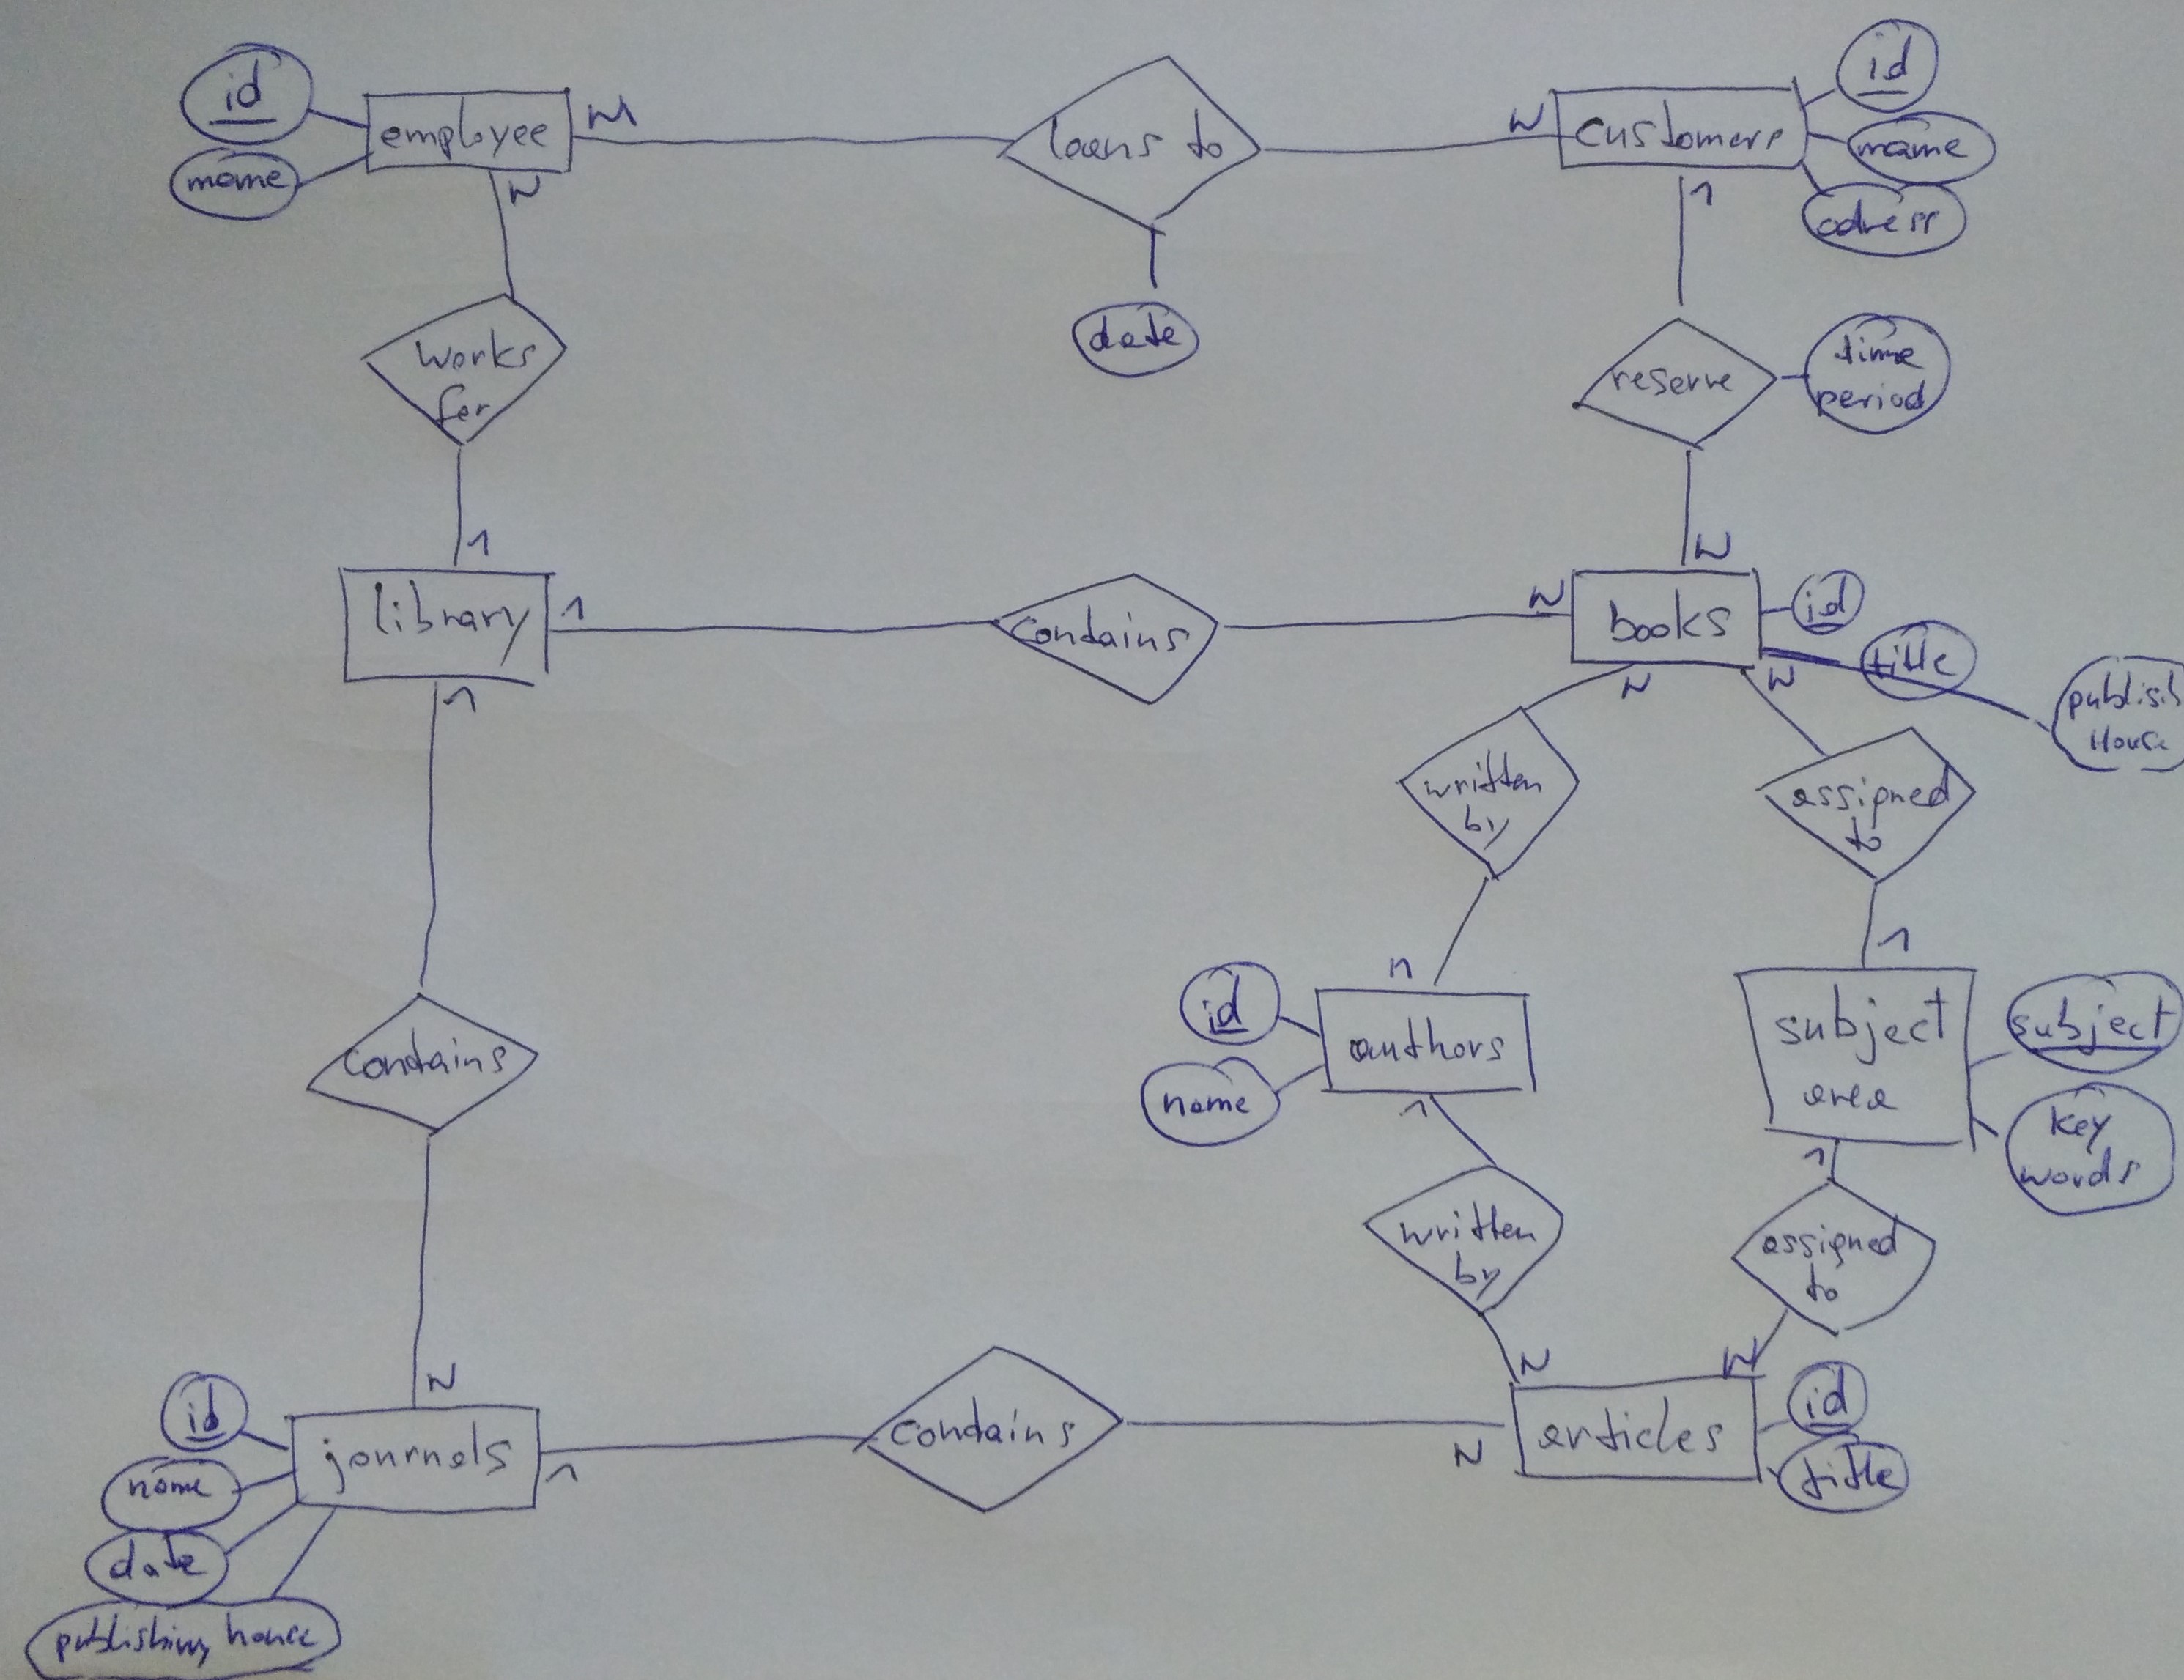 id
employee
M
loans to
N
customers
id
name
name
adress
N
1
date
works
for
reserve
time
period
1
N
library
1
contains
N
books
id
title
publish
House
1
N
N
written
by
assigned
to
n
1
id
authors
name
subject
area
subject
key
words
contains
1
1
written
by
assigned
to
N
N
N
id
journals
1
contains
N
articles
id
title
name
date
publishing house